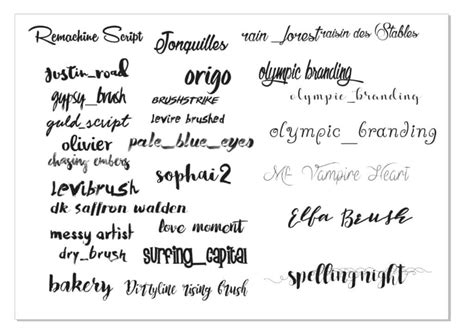 Remachine Script
Jonquilles
rain_forest
raisin des Stables
justin_road
origo
olympic branding
gypsy_brush
BRUSHSTRIKE
olympic_branding
guld_script
levire brushed
olivier
pale_blue_eyes
olympic_branding
chasing embers
levibrush
sophai2
Mf Vampire Heart
dk saffron walden
Elfa Brush
messy artist
love moment
dry_brush
surfing_capital
spellingnight
bakery
Dirtyline rising brush